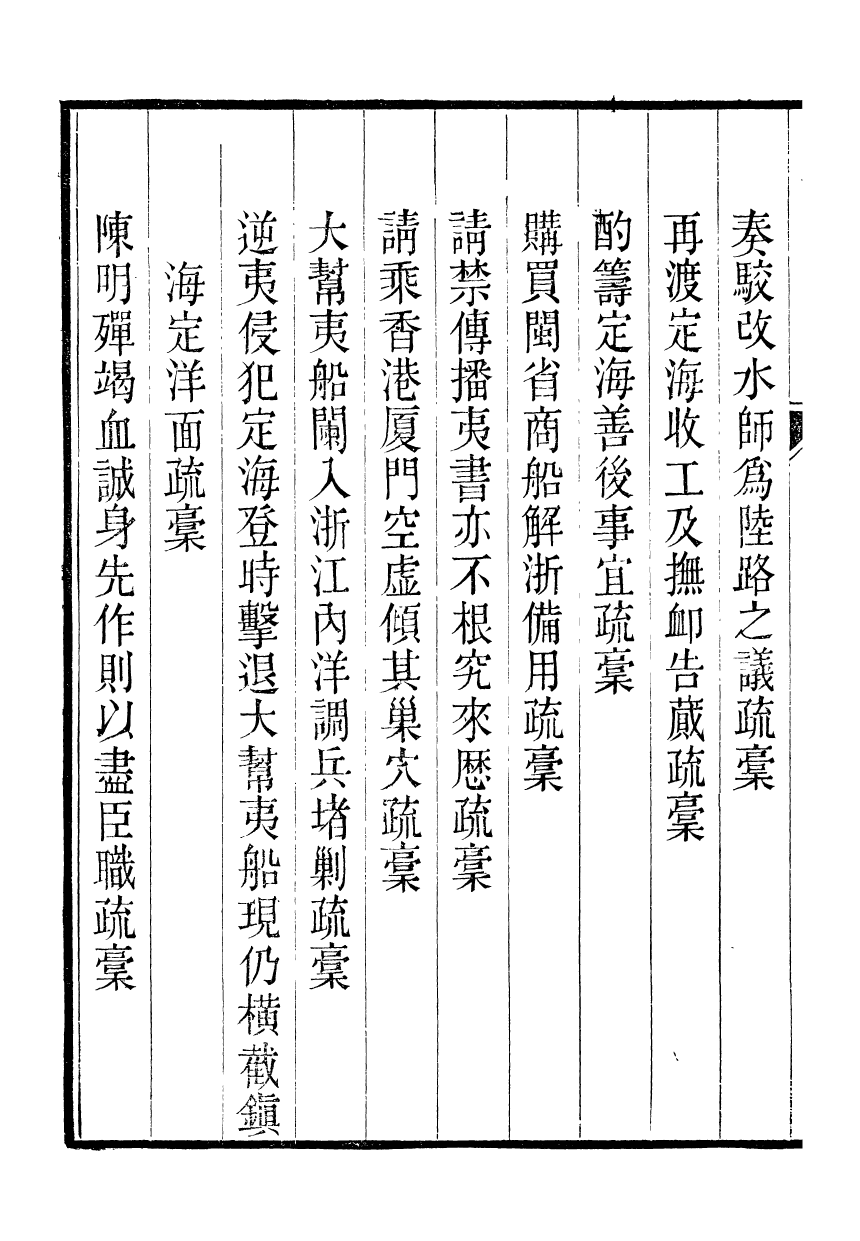 奏駮改水師爲陸路之議疏稾
再渡定海收工及撫卹告蕆疏稾
酌籌定海善後事宜疏稾
購買閩省商船解浙備用疏稾
請禁傳播夷書亦不根究來歷疏稾
請乘香港厦門空虛傾其巢穴疏稾
大幫夷船闌入浙江內洋調兵堵剿疏稾
逆夷侵犯定海登時擊退大幫夷船現仍橫截鎭
海定洋面疏稾
陳明殫竭血誠身先作則以盡臣職疏稾